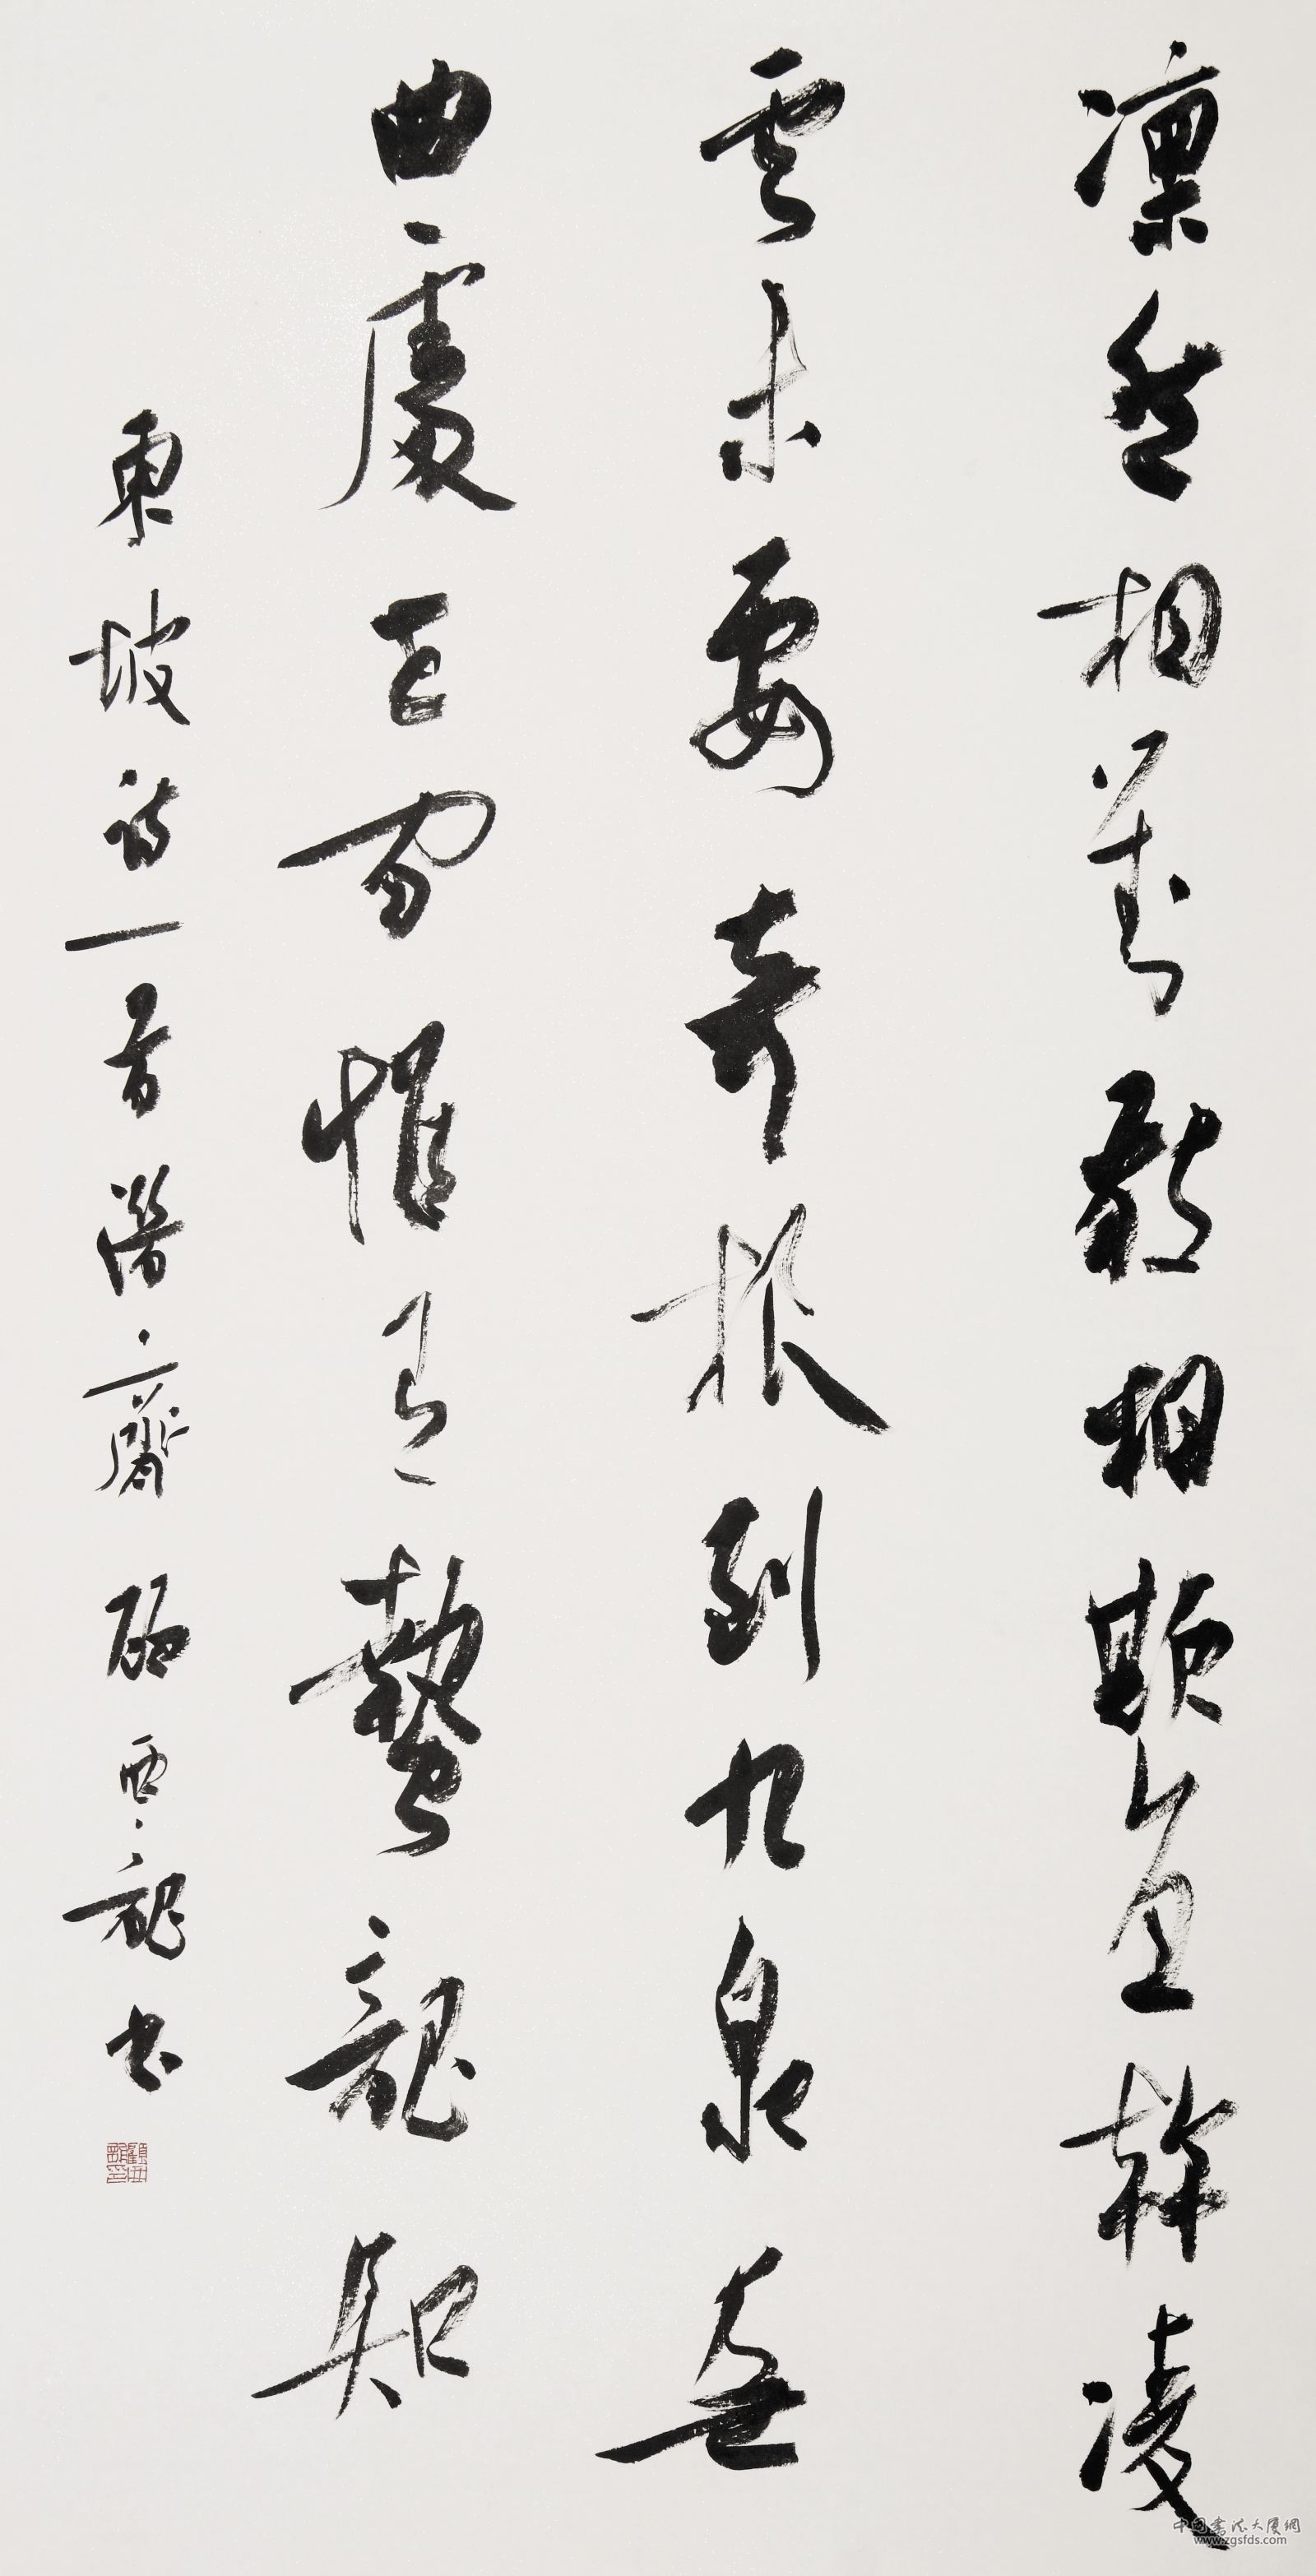 凜然相對敢相欺直幹凌
雲未要奇根到九泉無
曲處世間惟有蟄龍知
東坡詩一首潛齋顧亞龍書
顧亞龍印
中国書法大厦網
www.zgsfds.com